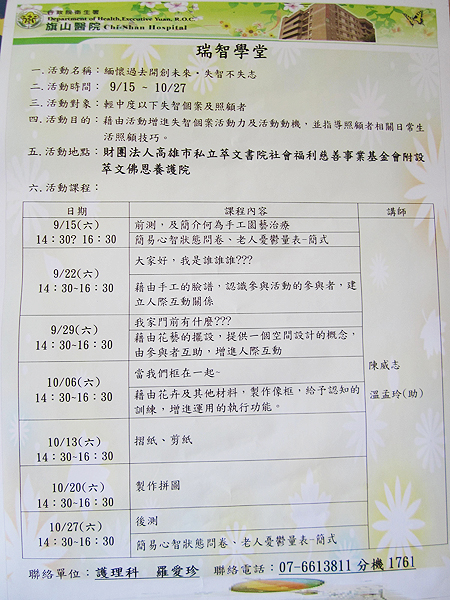 行政院衛生署
Department of Health, Executive Yuan, R.O.C.
旗山醫院 Chi-Shan Hospital
瑞智學堂
一.活動名稱：緬懷過去開創未來‧失智不失志
二.活動時間： 9/15 ~ 10/27
三.活動對象：輕中度以下失智個案及照顧者
四.活動目的：藉由活動增進失智個案活動力及活動動機，並指導照顧者相關日常生
活照顧技巧。
五.活動地點：財團法人高雄市私立萃文書院社會福利慈善事業基金會附設
萃文佛恩養護院
六.活動課程：
日期 課程內容 講師
9/15(六)
14：30? 16：30
前測，及簡介何為手工園藝治療
簡易心智狀態問卷、老人憂鬱量表-簡式
9/22(六)
14：30~16：30
大家好，我是誰誰誰???
藉由手工的臉譜，認識參與活動的參與者，建
立人際互動關係
9/29(六)
14：30~16：30
我家門前有什麼???
藉由花藝的擺設，提供一個空間設計的概念，
由參與者互助，增進人際互動
10/06(六)
14：30~16：30
當我們框在一起~
藉由花卉及其他材料，製作像框，給予認知的
訓練，增進運用的執行功能。
10/13(六)
14：30~16：30
摺紙、剪紙
10/20(六)
14：30~16：30
製作拼圖
10/27(六)
14：30~16：30
後測
簡易心智狀態問卷、老人憂鬱量表-簡式
陳威志
溫孟玲(助)
聯絡單位：護理科 羅愛珍 聯絡電話：07-6613811 分機 1761